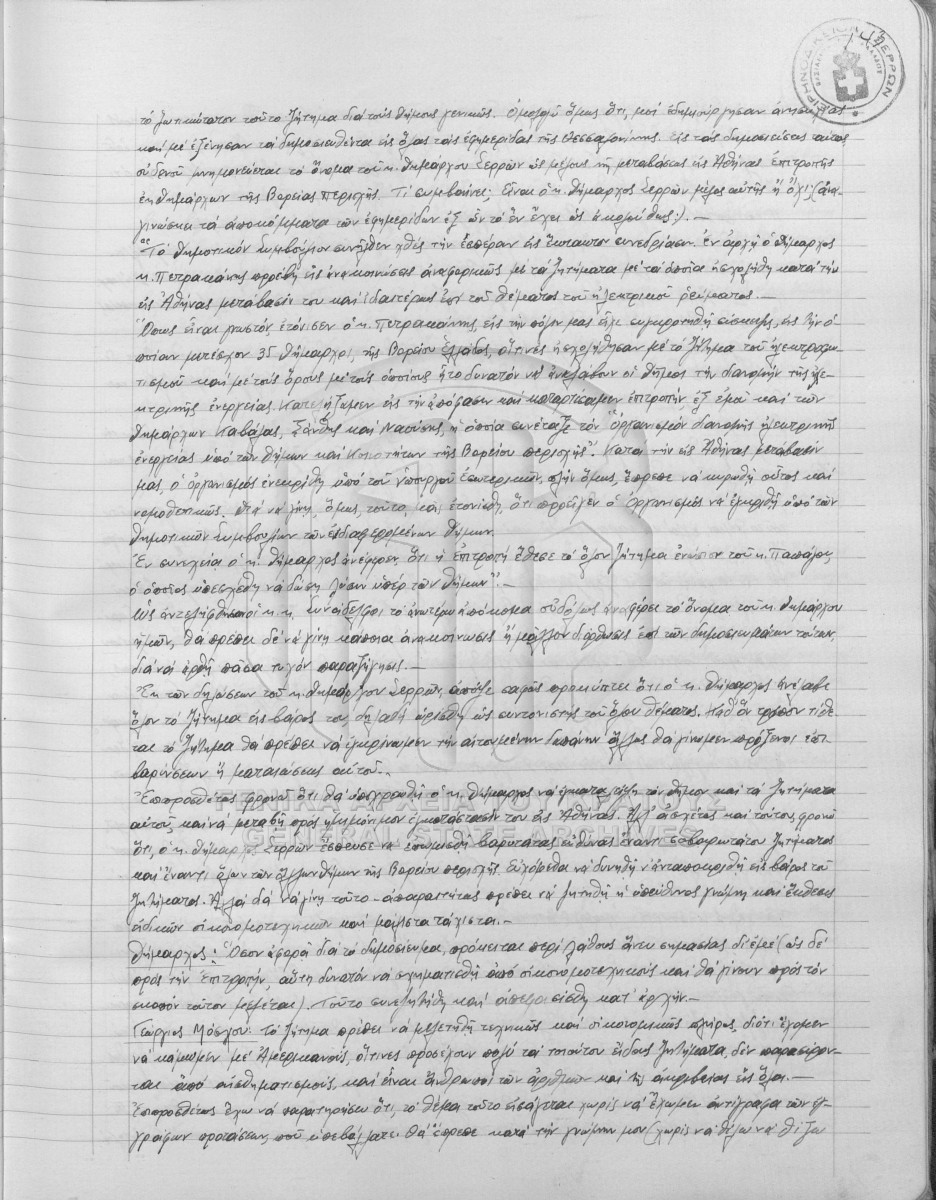 τὸ ζωτικώτατον τοῦτο ζήτημα διὰ τοὺς Δήμους γενικῶς. Ὁμολογῶ ὅμως ὅτι, μοὶ ἐδημιούργησαν ἀνησυχίας
καὶ μὲ ἐξένησαν τὰ δημοσιευθέντα εἰς ὅλας τὰς ἐφημερίδας τῆς Θεσσαλονίκης. Εἰς τὰς δημοσιεύσεις ταύτας
οὐδενοῦ μνημονεύεται τὸ ὄνομα τοῦ κ. Δημάρχου Σερρῶν ὡς μέλους τῆς μεταβάσης εἰς Ἀθήνας ἐπιτροπῆς
ἐκ Δημάρχων τῆς Βορείας περιοχῆς. Τί συμβαίνει; Εἶναι ὁ κ. Δήμαρχος Σερρῶν μέλος αὐτῆς ἢ ὄχι; (ἀνα-
γινώσκει τὰ ἀποκόμματα τῶν ἐφημερίδων ἐξ ὧν τὸ ἓν ἔχει ὡς ἀκολούθως:). —
"Τὸ Δημοτικὸν Συμβούλιον συνῆλθεν χθὲς τὴν ἑσπέραν εἰς ἔκτακτον συνεδρίασιν. Ἐν ἀρχῇ ὁ Δήμαρχος
κ. Πετρακάκης προέβη εἰς ἀνακοινώσεις ἀναφορικῶς μὲ τὰ ζητήματα μὲ τὰ ὁποῖα ἠσχολήθη κατὰ τὴν
εἰς Ἀθήνας μετάβασίν του καὶ ἰδιαιτέρως ἐπὶ τοῦ θέματος τοῦ ἠλεκτρικοῦ ρεύματος. —
Ὅπως εἶναι γνωστὸν ἐτόνισεν ὁ κ. Πετρακάκης, εἰς τὴν πόλιν μας εἶχε συγκροτηθῆ σύσκεψις, εἰς τὴν ὁ-
ποίαν μετέσχον 35 Δήμαρχοι, τῆς Βορείου Ἑλλάδος, οἵτινες ἠσχολήθησαν μὲ τὸ ζήτημα τοῦ ἠλεκτροφω-
τισμοῦ καὶ μὲ τοὺς ὅρους μὲ τοὺς ὁποίους ἦτο δυνατὸν νὰ ἀναλάβουν οἱ Δῆμοι τὴν διανομὴν τῆς ἠλε-
κτρικῆς ἐνεργείας. Κατελήξαμεν εἰς τὴν ἀπόφασιν καὶ κατηρτίσαμεν ἐπιτροπὴν, ἐξ ἐμοῦ καὶ τῶν
Δημάρχων Καβάλας, Ξάνθης καὶ Ναούσης, ἡ ὁποία συνέταξε τὸν "Ὀργανισμὸν διανομῆς ἠλεκτρικῆς
ἐνεργείας ὑπὸ τῶν Δήμων καὶ Κοινοτήτων τῆς Βορείου περιοχῆς". Κατὰ τὴν εἰς Ἀθήνας μετάβασίν
μας, ὁ ὀργανισμὸς ἐνεκρίθη ὑπὸ τοῦ Ὑπουργοῦ Ἐσωτερικῶν, πλὴν ὅμως, ἔπρεπε νὰ κυρωθῇ οὗτος καὶ
νομοθετικῶς. Διὰ νὰ γίνῃ ὅμως, τοῦτο, μᾶς ἐτονίσθη, ὅτι προεῖχεν ὁ Ὀργανισμὸς νὰ ἐγκριθῇ ὑπὸ τῶν
Δημοτικῶν Συμβουλίων τῶν ἐνδιαφερομένων Δήμων.
Ἐν συνεχείᾳ ὁ κ. Δήμαρχος ἀνέφερεν, ὅτι ἡ ἐπιτροπὴ ἔθεσε τὸ ὅλον ζήτημα ἐνώπιον τοῦ κ. Παπάγου,
ὁ ὁποῖος ὑπεσχέθη νὰ δώσῃ λύσιν ὑπὲρ τῶν Δήμων". —
Ὡς ἀντελήφθησαν οἱ κ.κ. Συνάδελφοι τὸ ἀνωτέρω ἀπόκομμα οὐδόλως ἀναφέρει τὸ ὄνομα τοῦ κ. Δημάρχου
ἡμῶν, θὰ πρέπει δὲ νὰ γίνῃ κάποια ἀνακοίνωσις ἢ μᾶλλον διόρθωσις ἐπὶ τῶν δημοσιευμάτων τούτων,
διὰ νὰ ἀρθῇ πᾶσα τυχὸν παρεξήγησις. —
Ἐκ τῶν δηλώσεων τοῦ κ. Δημάρχου Σερρῶν, ἀπόψε σαφῶς προκύπτει ὅτι ὁ κ. Δήμαρχος ἀνέλαβε
ὅλον τὸ ζήτημα εἰς βάρος του, δηλαδὴ ὡρίσθη ὡς συντονιστὴς τοῦ ὅλου θέματος. Καθ' ὃν τρόπον τίθε-
ται τὸ ζήτημα θὰ πρέπει νὰ ἐγκρίνωμεν τὴν αἰτουμένην δαπάνην ἄλλως θὰ γίνωμεν πρόξενοι ἐπι-
βαρύνσεων ἢ ματαιώσεως αὐτοῦ. —
Ἐπιπροσθέτως φρονῶ ὅτι θὰ ὑποχρεωθῇ ὁ κ. Δήμαρχος νὰ ἐγκαταλείψῃ τὸν Δῆμον καὶ τὰ ζητήματα
αὐτοῦ, καὶ νὰ μεταβῇ πρὸς μόνιμον ἐγκατάστασίν του εἰς Ἀθήνας. Ἀλλ' ἀσχέτως καὶ τούτου, φρονῶ
ὅτι, ὁ κ. Δήμαρχος Σερρῶν ἔσπευσε νὰ ἐπωμισθῇ βαρυτάτας εὐθύνας ἔναντι σοβαρωτάτου ζητήματος
καὶ ἔναντι ὅλων τῶν ἄλλων Δήμων τῆς Βορείου περιοχῆς. Εὐχόμεθα νὰ δυνηθῇ ν' ἀνταποκριθῇ εἰς βάρος τοῦ
ζητήματος. Ἀλλὰ διὰ νὰ γίνῃ τοῦτο - ἀπαραιτήτως πρέπει νὰ ζητηθῇ ἡ ὑπεύθυνος γνώμη καὶ ἔκθεσις
εἰδικῶν οἰκονομοτεχνικῶν καὶ μάλιστα τάχιστα. —
Δήμαρχος: Ὅσον ἀφορᾷ διὰ τὸ δημοσίευμα, πρόκειται περὶ λάθους ἄνευ σημασίας δι' ἐμέ (ὡς δὲ
πρὸς τὴν Ἐπιτροπήν, αὕτη δυνατὸν νὰ σχηματισθῇ ἀπὸ οἰκονομοτεχνικοὺς καὶ θὰ γίνουν πρὸς τὸν
σκοπὸν τοῦτον μελέται). Τοῦτο συνεζητήθη καὶ ἀπεφασίσθη κατ' ἀρχήν. —
Γεώργιος Μόσχου: Τὸ ζήτημα πρέπει νὰ μελετηθῇ τεχνικῶς καὶ οἰκονομικῶς πλήρως, διότι ἔχομεν
νὰ κάμωμεν μὲ Ἀμερικανούς, οἵτινες προσέχουν πολὺ τὰ τοιούτου εἴδους ζητήματα, δὲν παρασύρον-
ται ἀπὸ αἰσθηματισμούς, καὶ εἶναι ἄνθρωποι τῶν ἀριθμῶν καὶ τῆς ἀκριβείας εἰς ὅλα. —
Ἐπιπροσθέτως ἔχω νὰ παρατηρήσω ὅτι, τὸ θέμα τοῦτο εἰσάγεται χωρὶς νὰ ἔχωμεν ἀντίγραφα τῶν ἐγ-
γράφων προτάσεων, ποὺ ὑπεβάλλατε. Θὰ ἔπρεπε κατὰ τὴν γνώμην μου (χωρὶς νὰ θέλω νὰ θίξω
ΓΕΝΙΚΑ ΑΡΧΕΙΑ ΤΟΥ ΚΡΑΤΟΥΣ
GENERAL STATE ARCHIVES